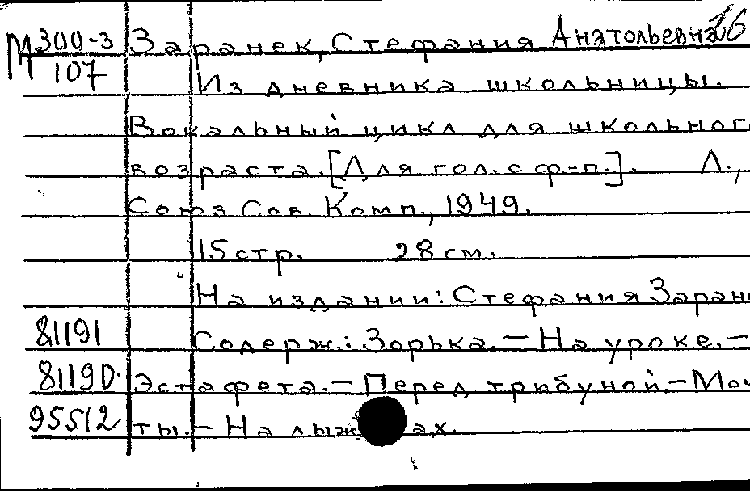 М 300-3 Заранек, Стефания Анатольевна 26
107 Из дневника школьницы.
Вокальный цикл для школьног
возраста. [Для гол. с ф-п.]. Л.,
Союз Сов. Комп., 1949.
15 стр. 28 см.
На издании: Стефания Заран
81191 Содерж.: Зорька. — На уроке. —
81190 Эстафета. — Перед трибуной. — Меч
95512 ты. — На лыжах.